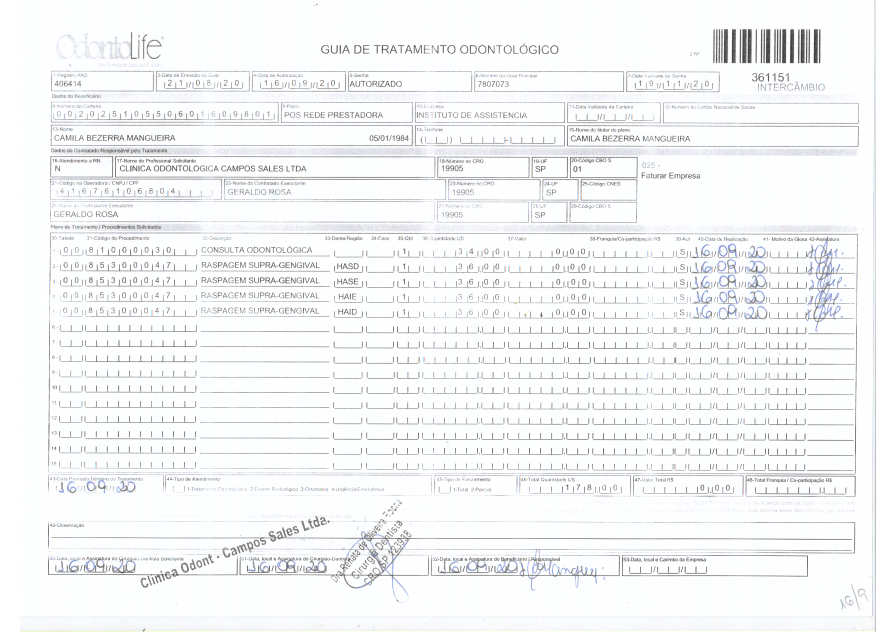 OdontoLife
GUIA DE TRATAMENTO ODONTOLÓGICO
361151
INTERCÂMBIO
1-Registro ANS 3-Data de Emissão da Guia 4-Data de Autorização 5-Senha 6-Número da Guia Principal 7-Data Validade da Senha
406414 21/08/20 16/09/20 AUTORIZADO 7807073 19/11/20
Dados do Beneficiário
8-Número da Carteira 9-Plano 10-Empresa 11-Data Validade da Carteira 12-Número do Cartão Nacional de Saúde
00202510550601609801 POS REDE PRESTADORA INSTITUTO DE ASSISTENCIA
13-Nome 14-Telefone 15-Nome do titular do plano
CAMILA BEZERRA MANGUEIRA 05/01/1984 CAMILA BEZERRA MANGUEIRA
Dados do Contratado Responsável pelo Tratamento
16-Atendimento a RN 17-Nome do Profissional Solicitante 18-Número no CRO 19-UF 20-Código CBO S
N CLINICA ODONTOLOGICA CAMPOS SALES LTDA 19905 SP 01
025 -
Faturar Empresa
21-Código na Operadora / CNPJ / CPF 22-Nome do Contratado Executante 23-Número no CRO 24-UF 25-Código CNES
41676106804 GERALDO ROSA 19905 SP
26-Nome do Profissional Executante 27-Número no CRO 28-UF 29-Código CBO S
GERALDO ROSA 19905 SP
Plano de Tratamento / Procedimentos Solicitados
30-Tabela 31-Código do Procedimento 32-Descrição 33-Dente/Região 34-Face 35-Qtd 36-Quantidade US 37-Valor 38-Franquia/Co-participação R$ 39-Aut 40-Data de Realização 41-Motivo da Glosa 42-Assinatura
1- 00 81000030 CONSULTA ODONTOLÓGICA 1 34 00 0 00 S 16/09/20
2- 00 85300047 RASPAGEM SUPRA-GENGIVAL HASD 1 36 00 0 00 S 16/09/20
3- 00 85300047 RASPAGEM SUPRA-GENGIVAL HASE 1 36 00 0 00 S 16/09/20
4- 00 85300047 RASPAGEM SUPRA-GENGIVAL HAIE 1 36 00 0 00 S 16/09/20
5- 00 85300047 RASPAGEM SUPRA-GENGIVAL HAID 1 36 00 0 00 S 16/09/20
6-
7-
8-
9-
10
11
12
13
14
15
43-Data Previsão Término do Tratamento 44-Tipo de Atendimento 45-Tipo de Faturamento 46-Total Quantidade US 47-Valor Total R$ 48-Total Franquia / Co-participação R$
16/09/20 1-Tratamento Odontológico 2-Exame Radiológico 3-Ortodontia 4-Urgência/Emergência 1-Total 2-Parcial 178 00 0 00
49-Observação
50-Data, local e Assinatura do Cirurgião-Dentista Solicitante 51-Data, local e Assinatura do Cirurgião-Dentista 52-Data, local e Assinatura do Beneficiário / Responsável 53-Data, local e Carimbo da Empresa
16/09/20 16/09/20 16/09/20
Clínica Odont - Campos Sales Ltda.
Cirurgiã Dentista
16/9